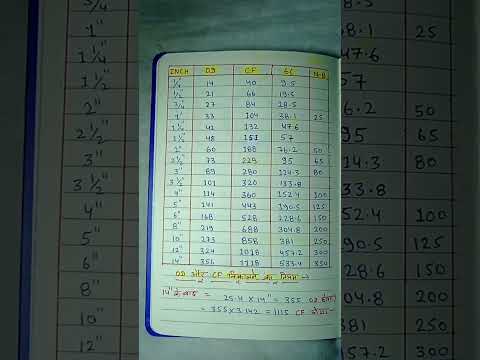 INCH OD CF SC N.B
1/4" 14 40 9.5
1/2" 21 66 19.5
3/4" 27 84 28.5
1" 33 104 38.1 25
1 1/4" 42 132 47.6
1 1/2" 48 151 57
2" 60 188 76.2 50
2 1/2" 73 229 95 65
3" 89 280 114.3 80
3 1/2" 101 320 133.8
4" 114 360 152.4 100
5" 141 443 190.5 125
6" 168 528 228.6 150
8" 219 688 304.8 200
10" 273 858 381 250
12" 324 1018 457.2 300
14" 356 1118 533.4 350
OD और CF निकालने का नियम →
14" के बाद = 25.4 × 14" = 355 OD होगा
= 355 × 3.142 = 1115 CF होगा